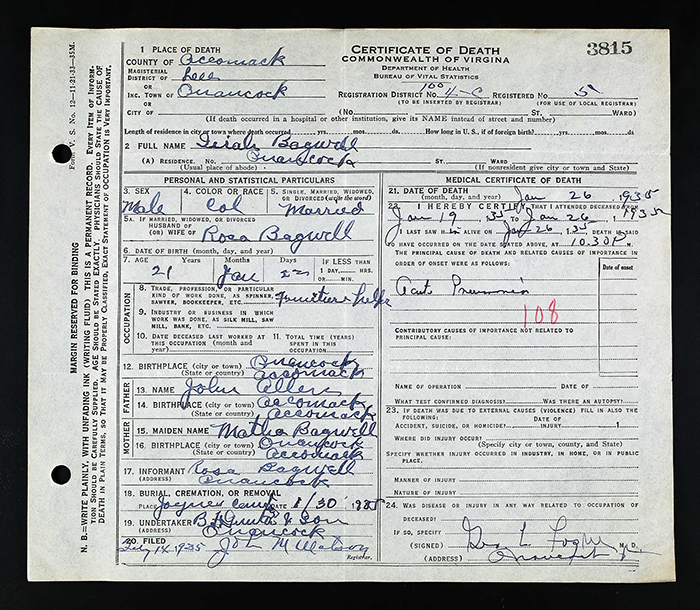 3815
CERTIFICATE OF DEATH
COMMONWEALTH OF VIRGINIA
DEPARTMENT OF HEALTH
BUREAU OF VITAL STATISTICS
1 PLACE OF DEATH
COUNTY OF Accomack
MAGISTERIAL
DISTRICT OF Lee
OR
INC. TOWN OF Onancock
REGISTRATION DISTRICT NO. 100 4-C REGISTERED NO. 5
(TO BE INSERTED BY REGISTRAR) (FOR USE OF LOCAL REGISTRAR)
OR
CITY OF (No. ST. WARD)
(If death occurred in a hospital or other institution, give its NAME instead of street and number)
Length of residence in city or town where death occurred yrs. mos. ds. How long in U. S., if of foreign birth? yrs. mos. ds
2 FULL NAME Bagwell
(A) RESIDENCE. No. Onancock ST. WARD
(Usual place of abode) (If nonresident give city or town and State)
PERSONAL AND STATISTICAL PARTICULARS
3. SEX 4. COLOR OR RACE 5. SINGLE, MARRIED, WIDOWED, OR DIVORCED (write the word)
Male Col Married
5A. IF MARRIED, WIDOWED, OR DIVORCED
HUSBAND OF
(OR) WIFE OF Rosa Bagwell
6. DATE OF BIRTH (month, day, and year)
7. AGE Years Months Days IF LESS THAN 1 DAY, HRS. OR MIN.
21 Jan 22
OCCUPATION
8. TRADE, PROFESSION, OR PARTICULAR
KIND OF WORK DONE, AS SPINNER,
SAWYER, BOOKKEEPER, ETC.
9. INDUSTRY OR BUSINESS IN WHICH
WORK WAS DONE, AS SILK MILL, SAW
MILL, BANK, ETC.
10. DATE DECEASED LAST WORKED AT THIS OCCUPATION (month and year)
11. TOTAL TIME (YEARS) SPENT IN THIS OCCUPATION
12. BIRTHPLACE (city or town) Onancock
(State or country) Accomack
FATHER
13. NAME John Allen
14. BIRTHPLACE (city or town) Accomack
(State or country) Accomack
MOTHER
15. MAIDEN NAME Matha Bagwell
16. BIRTHPLACE (city or town) Onancock
(State or country) Accomack
17. INFORMANT Rosa Bagwell
(ADDRESS) Onancock
18. BURIAL, CREMATION, OR REMOVAL
PLACE DATE 1/30
19. UNDERTAKER & Son
(ADDRESS) Onancock
20. FILED Feby 14 1935 Jol M Watson
Registrar.
MEDICAL CERTIFICATE OF DEATH
21. DATE OF DEATH
(month, day, and year) Jan 26 1935
22. I HEREBY CERTIFY, THAT I ATTENDED DECEASED FROM
Jan 19, 35 TO Jan 26, 1935
I LAST SAW H im ALIVE ON Jan 26, 35 DEATH IS SAID
TO HAVE OCCURRED ON THE DATE STATED ABOVE, AT 10.30 P. M.
THE PRINCIPAL CAUSE OF DEATH AND RELATED CAUSES OF IMPORTANCE
IN ORDER OF ONSET WERE AS FOLLOWS:
Date of onset
Acute Pneumonia
108
CONTRIBUTORY CAUSES OF IMPORTANCE NOT RELATED TO
PRINCIPAL CAUSE:
NAME OF OPERATION DATE OF
WHAT TEST CONFIRMED DIAGNOSIS? WAS THERE AN AUTOPSY?
23. IF DEATH WAS DUE TO EXTERNAL CAUSES (VIOLENCE) FILL IN ALSO THE
FOLLOWING:
ACCIDENT, SUICIDE, OR HOMICIDE? DATE OF INJURY 1
WHERE DID INJURY OCCUR?
(Specify city or town, county, and State)
SPECIFY WHETHER INJURY OCCURRED IN INDUSTRY, IN HOME, OR IN PUBLIC
PLACE.
MANNER OF INJURY
NATURE OF INJURY
24. WAS DISEASE OR INJURY IN ANY WAY RELATED TO OCCUPATION OF
DECEASED?
IF SO, SPECIFY
(SIGNED) Geo. L. M.D.
(ADDRESS) Onancock
Form V. S. No. 12—11-21-33—35M.
MARGIN RESERVED FOR BINDING
N. B.—WRITE PLAINLY, WITH UNFADING INK (WRITING FLUID) THIS IS A PERMANENT RECORD. EVERY ITEM OF INFORMATION SHOULD BE CAREFULLY SUPPLIED. AGE SHOULD BE STATED EXACTLY. PHYSICIANS SHOULD STATE THE CAUSE OF DEATH IN PLAIN TERMS, SO THAT IT MAY BE PROPERLY CLASSIFIED. EXACT STATEMENT OF OCCUPATION IS VERY IMPORTANT.